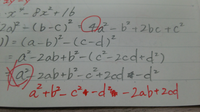 x⁴-8x²+16
2a)²-(b-c)² = 4a²-b²+2bc+c²
1) = (a-b)²-(c-d)²
= a²-2ab+b²-(c²-2cd+d²)
= a²-2ab+b²-c²+2cd-d²
a²+b²-c²-d²-2ab+2cd